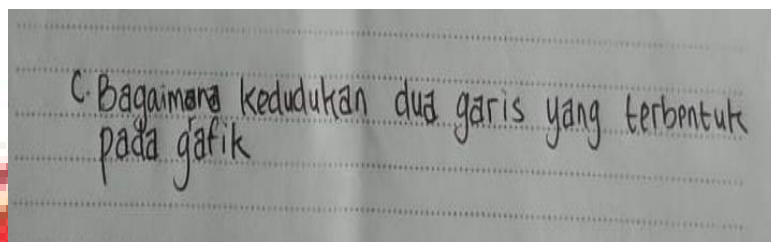 C. Bagaimana kedudukan dua garis yang terbentuk
pada gafik